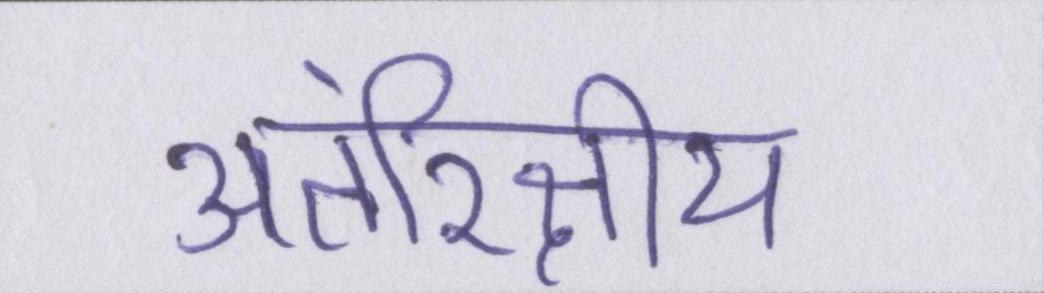 अतंरिक्षीय